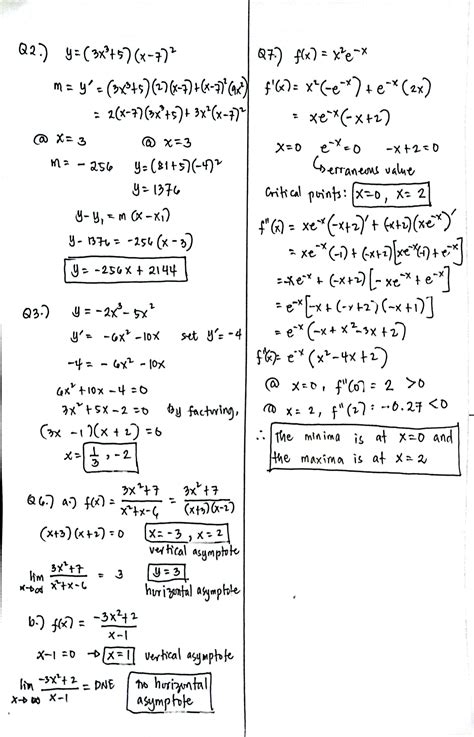 Q2.) y=(3x³+5)(x-7)²
m = y' = (3x³+5)(2)(x-7)+(x-7)²(9x²)
= 2(x-7)(3x³+5)+3x²(x-7)²
@ x=3 @ x=3
m = -256 y=(81+5)(-4)²
y= 1376
y-y₁ = m (x-x₁)
y-1376 = -256 (x-3)
y = -256x + 2144
Q3.) y = -2x³-5x²
y' = -6x²-10x set y'=-4
-4 = -6x²-10x
6x²+10x-4=0
3x²+5x-2=0 by factoring,
(3x-1)(x+2)=0
x= 1/3, -2
Q6.) a.) f(x) = 3x²+7/x²+x-6 = 3x²+7/(x+3)(x-2)
(x+3)(x+2)=0 x=-3, x=2
vertical asymptote
lim x→∞ 3x²+7/x²+x-6 = 3 y=3
horizontal asymptote
b.) f(x) = -3x²+2/x-1
x-1=0 → x=1 vertical asymptote
lim x→∞ -3x²+2/x-1 = DNE no horizontal
asymptote
Q7.) f(x) = x²e^-x
f'(x) = x²(-e^-x)+e^-x(2x)
= xe^-x(-x+2)
x=0 e^-x=0 -x+2=0
↳ erraneous value
Critical points: x=0, x=2
f"(x) = xe^-x(-x+2)'+(-x+2)(xe^-x)'
= xe^-x(-1)+(-x+2)[xe^-x(-1)+e^-x]
= -xe^-x+(-x+2)[-xe^-x+e^-x]
= e^-x[-x+(-x+2)(-x+1)]
= e^-x(-x+x²-3x+2)
f"(x) = e^-x(x²-4x+2)
@ x=0, f"(0) = 2 >0
@ x=2, f"(2) = -0.27 <0
∴ The minima is at x=0 and
the maxima is at x=2